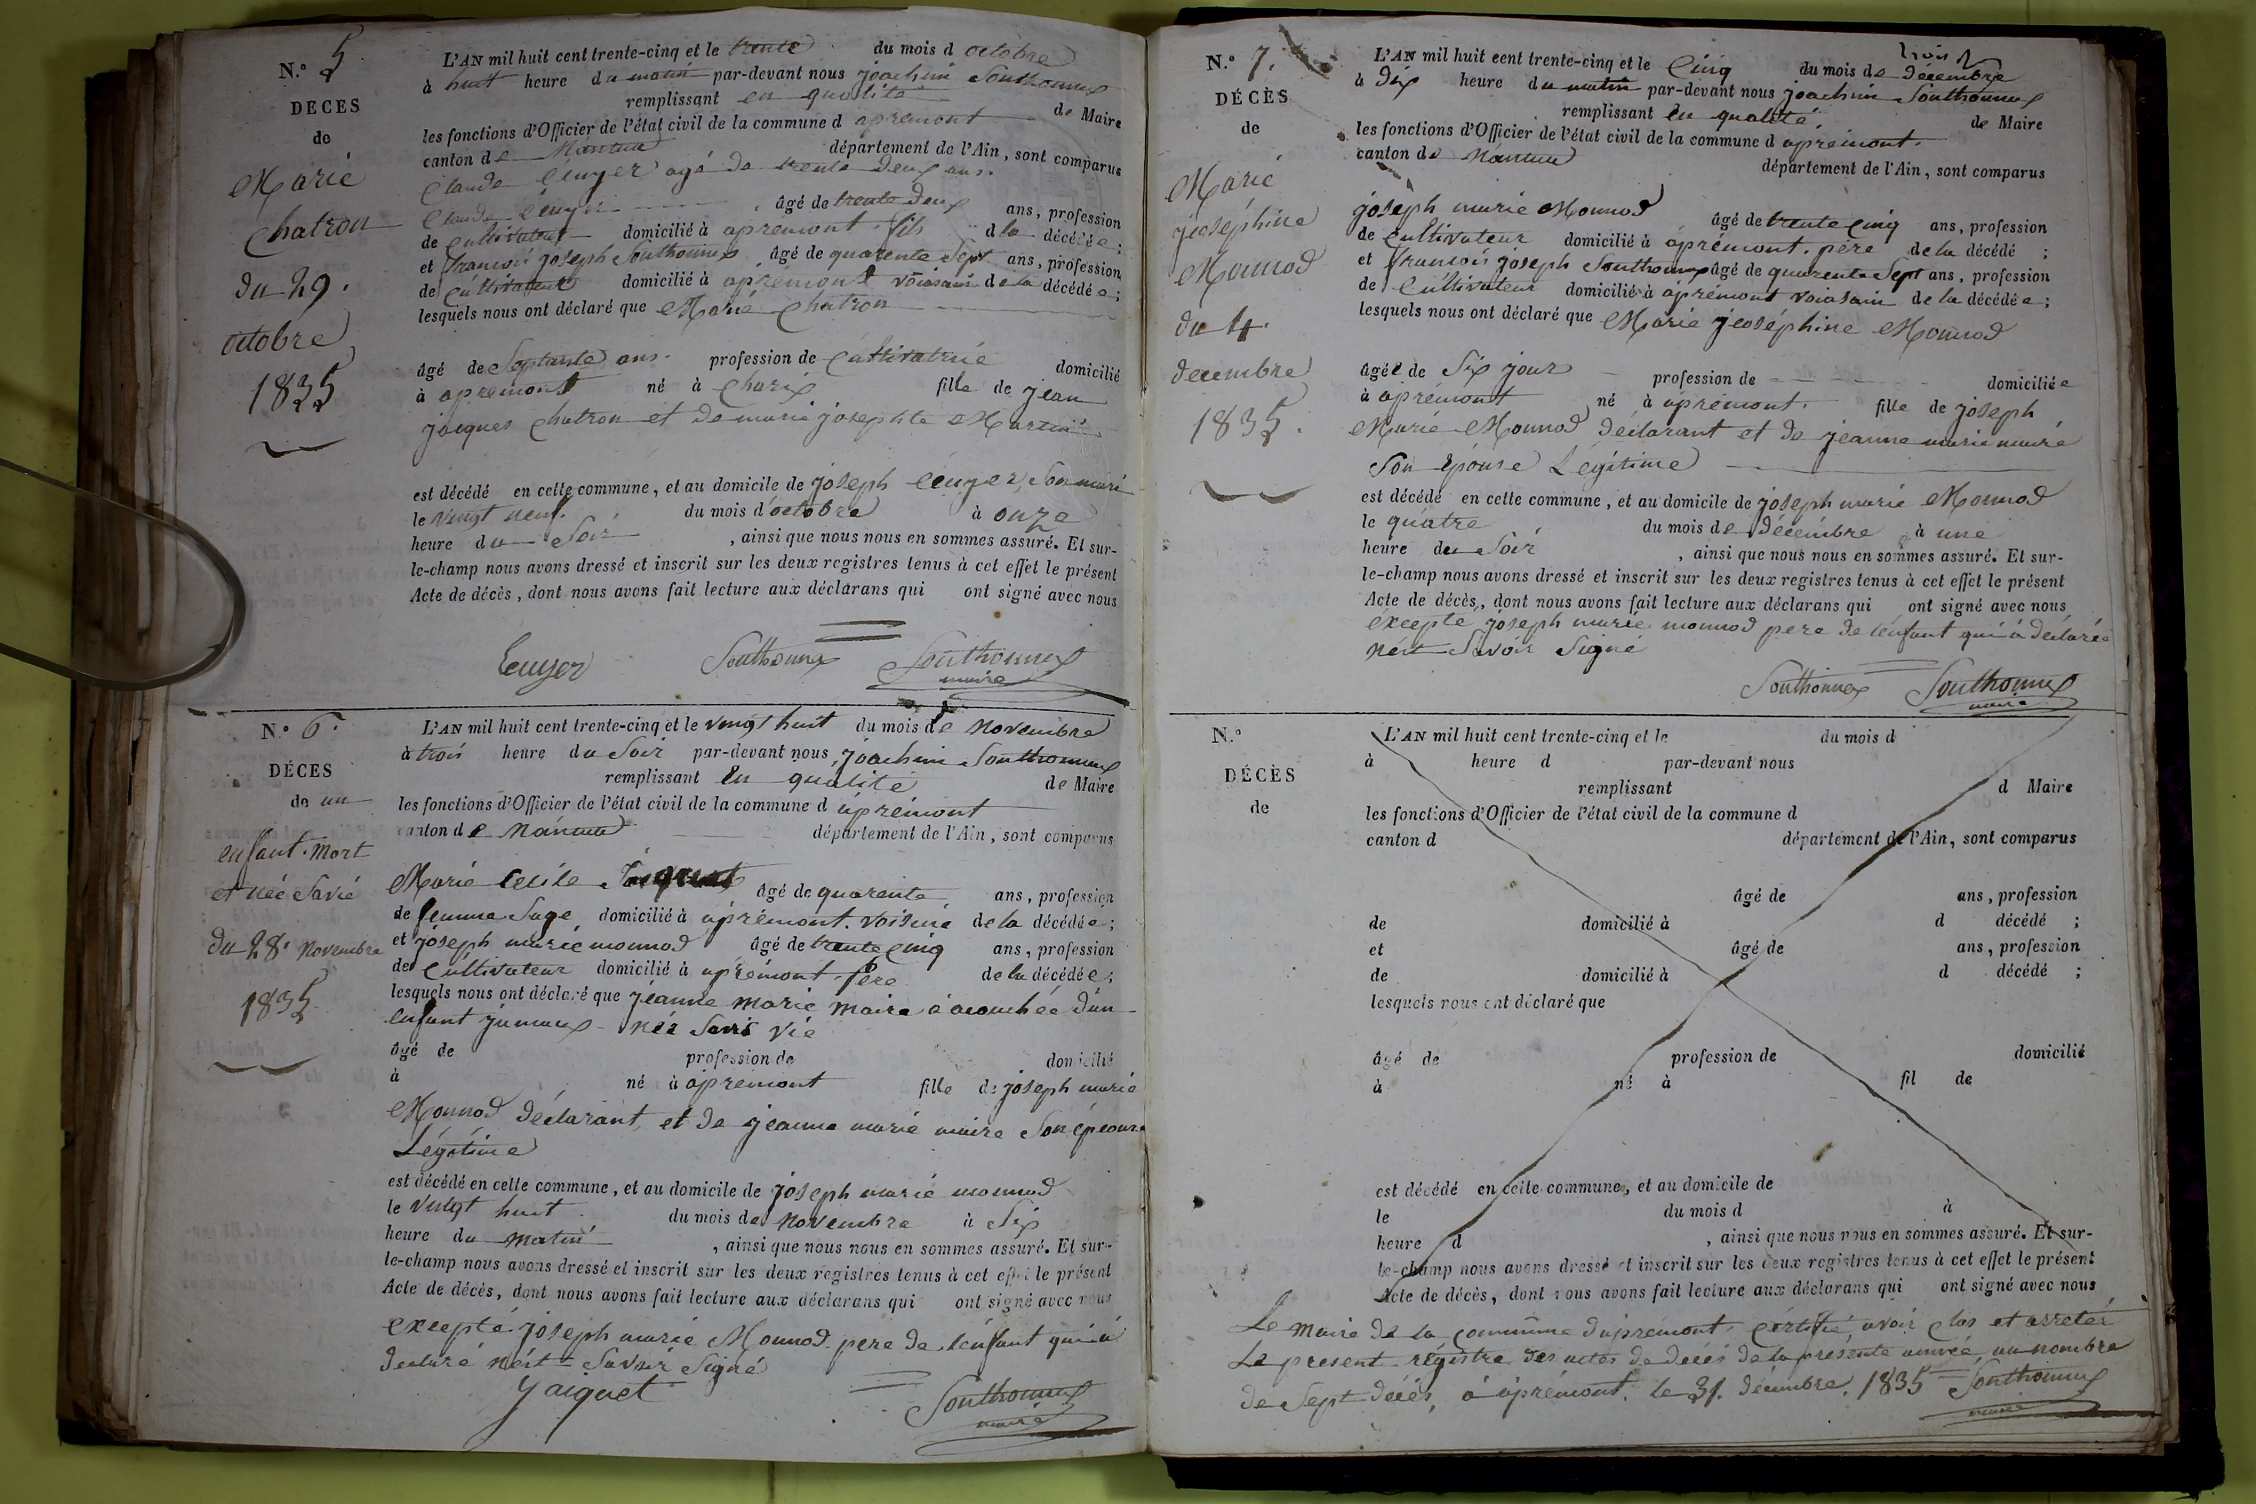 N.° 5
DECES
de
Marie
Chatron
du 29.
octobre
1835
L'AN mil huit cent trente-cinq et le trente du mois d octobre
à huit heure du matin par-devant nous joachim Southonnex
remplissant en qualité de Maire
les fonctions d'Officier de l'état civil de la commune d apremont
canton de Nantua département de l'Ain, sont comparus
Claude Ecuyer agé de trente deux ans.
Claude Ecuyer âgé de trente deux ans, profession
de Cultivateur domicilié à apremont fils d la décédée ;
et francois joseph Southonnex âgé de quarente Sept ans, profession
de Cultivateur domicilié à apremont voiasain de la décédée ;
lesquels nous ont déclaré que Marie Chatron
âgé de Septante ans. profession de Cultivatrice domicilié
à apremont né à Charix fille de jean
jacques Chatron et de marie josephte Martin
est décédé en cette commune, et au domicile de joseph Ecuyer, Son mari
le vingt neuf. du mois d'octobre à onze
heure du Soir , ainsi que nous nous en sommes assuré. Et sur-
le-champ nous avons dressé et inscrit sur les deux registres tenus à cet effet le présent
Acte de décès, dont nous avons fait lecture aux déclarans qui ont signé avec nous
Ecuyer Southonnex Southonnex
maire
N.° 6.
DÉCES
de un
enfant. Mort
et née Savie
du 28. Novembre
1835
L'AN mil huit cent trente-cinq et le vingt huit du mois de Novembre
à trois heure du Soir par-devant nous, joachim Southonnex
remplissant En qualité de Maire
les fonctions d'Officier de l'état civil de la commune d apremont
canton de Nantua département de l'Ain, sont comparus
Marie Cecile Jaiquet âgé de quarente ans, profession
de femme Sage domicilié à apremont. voisine de la décédée ;
et joseph marie monnod âgé de trente cinq ans, profession
de Cultivateur domicilié à apremont. père de la décédée ;
lesquels nous ont déclaré que jeanne marie maire à acouchée d'un
enfant jumeux née Sans vie
âgé de profession de domicilié
à né à apremont fille de joseph marie
Monnod déclarant, et de jeanne marie maire Son épouse
Légitime
est décédé en cette commune, et au domicile de joseph marie monnod
le vingt huit. du mois de Novembre à Six
heure du matin , ainsi que nous nous en sommes assuré. Et sur-
le-champ nous avons dressé et inscrit sur les deux registres tenus à cet effet le présent
Acte de décès, dont nous avons fait lecture aux déclarans qui ont signé avec nous
excepté joseph marie Monnod pere de lenfant qui à
declaré nést Savoir Signé
Jaiquet Southonnex
maire
N.° 7.
DÉCÈS
de
Marie
jeoséphine
Monnod
du 4.
decembre
1835.
L'AN mil huit cent trente-cinq et le Cinq du mois de décembre
à dix heure du matin par-devant nous joachim Southonnex
remplissant En qualité de Maire
les fonctions d'Officier de l'état civil de la commune d apremont.
canton de Nantua département de l'Ain, sont comparus
joseph marie Monnod âgé de trente cinq ans, profession
de Cultivateur domicilié à apremont. pere de la décédé ;
et francois joseph Southonnex âgé de quarente Sept ans, profession
de Cultivateur domicilié à apremont voiasain de la décédée ;
lesquels nous ont déclaré que Marie jeoséphine Monnod
âgée de Six jour profession de domiciliée
à apremont né à apremont. fille de joseph
Marie Monnod déclarant et de jeanne marie maire
Son Epouse Légitime
est décédé en cette commune, et au domicile de joseph marie Monnod
le quatre du mois de décembre à une
heure du Soir , ainsi que nous nous en sommes assuré. Et sur-
le-champ nous avons dressé et inscrit sur les deux registres tenus à cet effet le présent
Acte de décès, dont nous avons fait lecture aux déclarans qui ont signé avec nous
excepté joseph marie monnod pere de lenfant qui à déclarée
nést Savoir Signé
Southonnex Southonnex
maire
N.°
DÉCÈS
de
L'AN mil huit cent trente-cinq et le du mois d
à heure d par-devant nous
remplissant d Maire
les fonctions d'Officier de l'état civil de la commune d
canton d département de l'Ain, sont comparus
âgé de ans, profession
de domicilié à d décédé ;
et âgé de ans, profession
de domicilié à d décédé ;
lesquels nous ont déclaré que
âgé de profession de domicilié
à né à fil de
est décédé en cette commune, et au domicile de
le du mois d à
heure d , ainsi que nous nous en sommes assuré. Et sur-
le-champ nous avons dressé et inscrit sur les deux registres tenus à cet effet le présent
Acte de décès, dont nous avons fait lecture aux déclarans qui ont signé avec nous
Le maire de la commune d'apremont. certifié avoir clos et arreter
Le present régistre des actes de decés de la présente année, au nombre
de Sept décés, à apremont. le 31. décembre. 1835 Southonnex
maire